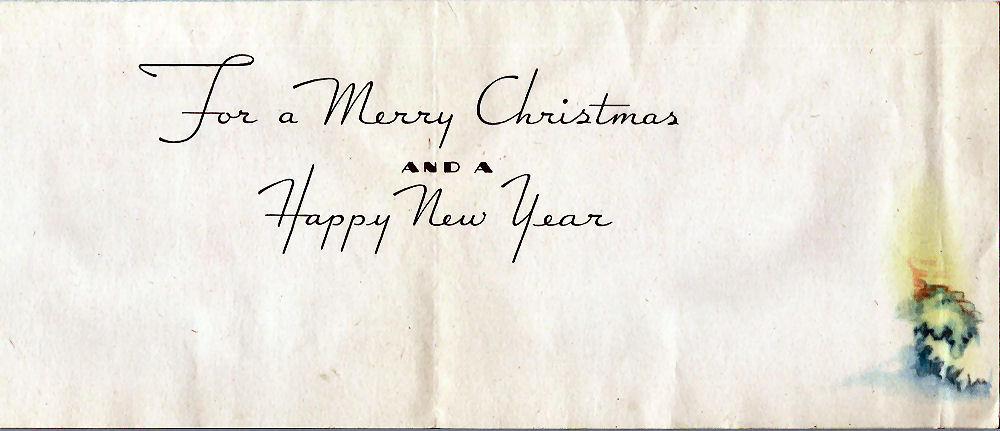 For a Merry Christmas
AND A
Happy New Year